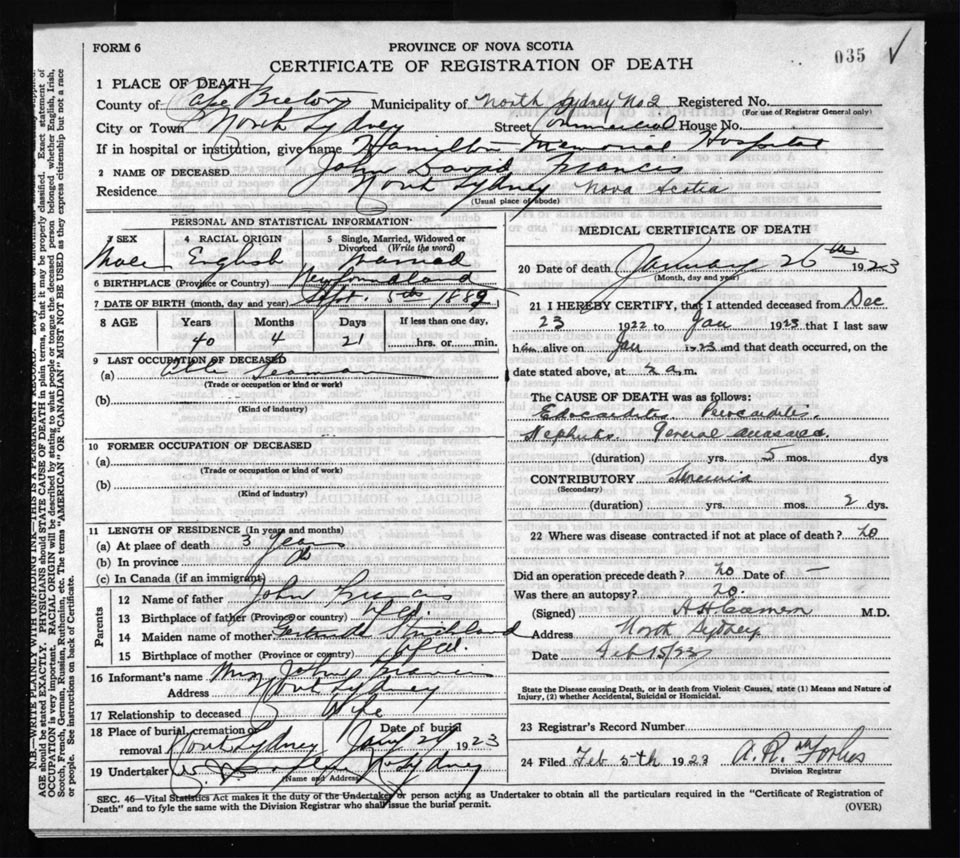 FORM 6
PROVINCE OF NOVA SCOTIA
035 ✓
CERTIFICATE OF REGISTRATION OF DEATH
1 PLACE OF DEATH
County of Cape Breton Municipality of North Sydney No 2 Registered No.
(For use of Registrar General only)
City or Town North Sydney Street Commercial House No.
If in hospital or institution, give name Hamilton Memorial Hospital
2 NAME OF DECEASED John David Francis
Residence North Sydney Nova Scotia
(Usual place of abode)
PERSONAL AND STATISTICAL INFORMATION
3 SEX 4 RACIAL ORIGIN 5 Single, Married, Widowed or Divorced (Write the word)
Male English Married
6 BIRTHPLACE (Province or Country) Newfoundland
7 DATE OF BIRTH (month, day and year) Sept. 5th 1882
8 AGE Years Months Days If less than one day,
40 4 21 hrs. or min.
9 LAST OCCUPATION OF DECEASED
(a) Seaman
(Trade or occupation or kind or work)
(b)
(Kind of industry)
10 FORMER OCCUPATION OF DECEASED
(a)
(Trade or occupation or kind or work)
(b)
(Kind of industry)
11 LENGTH OF RESIDENCE (In years and months)
(a) At place of death 3 years
(b) In province do
(c) In Canada (if an immigrant)
Parents
12 Name of father John Francis
13 Birthplace of father (Province or country) Nfld.
14 Maiden name of mother Strickland
15 Birthplace of mother (Province or country) Nfld.
16 Informant's name Mrs John Francis
Address North Sydney
17 Relationship to deceased Wife
18 Place of burial, cremation or removal North Sydney Date of burial Jany 1923
19 Undertaker N. Sydney
(Name and Address)
MEDICAL CERTIFICATE OF DEATH
20 Date of death January 26th 1923
(Month, day and year)
21 I HEREBY CERTIFY, that I attended deceased from Dec
23 1922 to Jan 1923 that I last saw
him alive on Jan 1923 and that death occurred, on the
date stated above, at a.m.
The CAUSE OF DEATH was as follows:
Endocarditis Pericarditis
Nephritis General anasarca
(duration) yrs. 5 mos. dys
CONTRIBUTORY Uremia
(Secondary)
(duration) yrs. mos. 2 dys.
22 Where was disease contracted if not at place of death? no
Did an operation precede death? no Date of —
Was there an autopsy? no.
(Signed) M.D.
Address North Sydney
Date Feb 15/23
State the Disease causing Death, or in death from Violent Causes, state (1) Means and Nature of
Injury, (2) whether Accidental, Suicidal or Homicidal.
23 Registrar's Record Number
24 Filed Feb 5th 1923 Forbes
Division Registrar
SEC. 46—Vital Statistics Act makes it the duty of the Undertaker or person acting as Undertaker to obtain all the particulars required in the "Certificate of Registration of
Death" and to fyle the same with the Division Registrar who shall issue the burial permit.
(OVER)
N.B.—WRITE PLAINLY WITH UNFADING INK—THIS IS A PERMANENT RECORD.
AGE should be stated EXACTLY. PHYSICIANS should STATE CAUSE OF DEATH in plain terms, so that it may be properly classified. Exact statement of
OCCUPATION is very important. RACIAL ORIGIN will be described by stating to what people or tongue the deceased person belonged whether English, Irish,
Scotch, French, German, Russian, Ruthenian, etc. The terms "AMERICAN" OR "CANADIAN" MUST NOT BE USED as they express citizenship but not a race
or people. See instructions on back of Certificate.